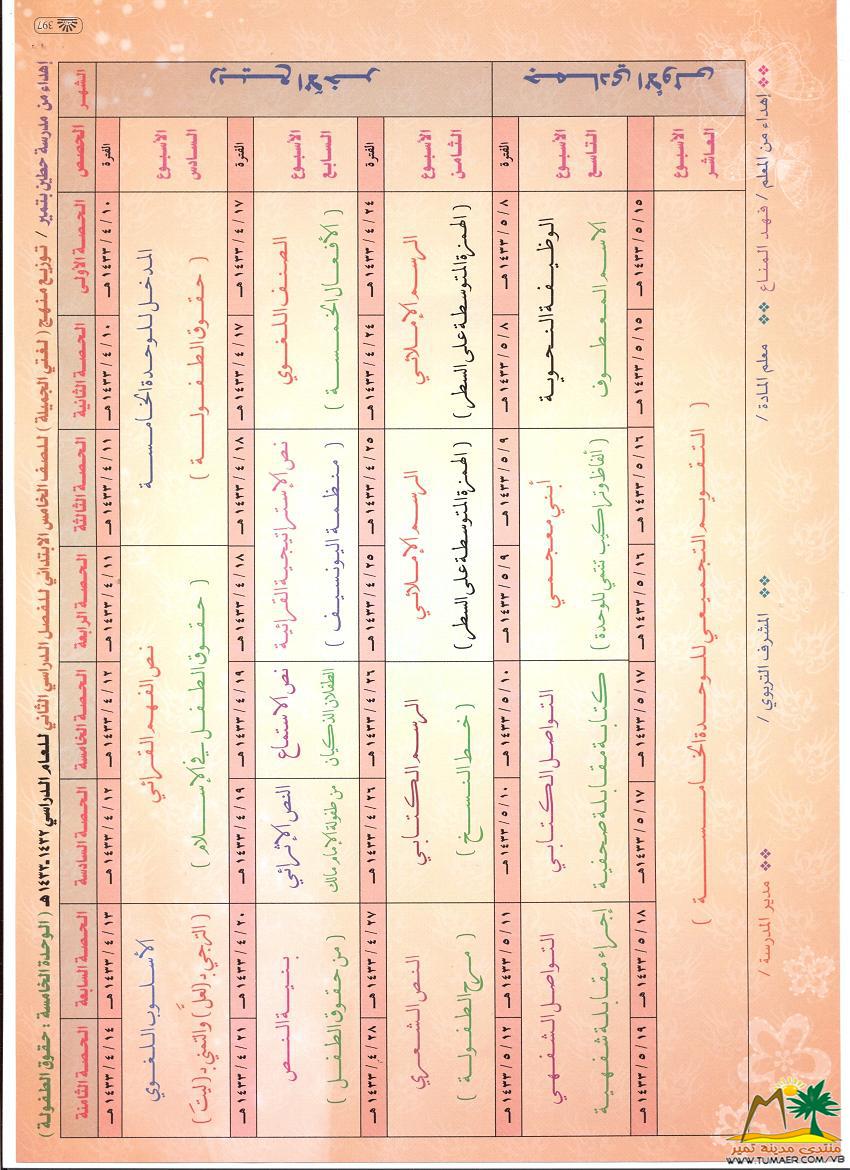 إهداء من مدرسة حطين بتمير / توزيع منهج ( لغتي الجميلة ) للصف الخامس الابتدائي للفصل الدراسي الثاني للعام الدراسي ١٤٣٢-١٤٣٣ هـ ( الوحدة الخامسة : حقوق الطفولة )
الشهر
ربيع الآخر
جمادى الأولى
الحصص
الفترة
الأسبوع السادس
الفترة
الأسبوع السابع
الفترة
الأسبوع الثامن
الفترة
الأسبوع التاسع
الأسبوع العاشر
الحصة الأولى
١٤٣٣ / ٤ / ١٠ هـ
المدخل للوحدة الخامسة
( حقوق الطفولة )
١٤٣٣ / ٤ / ١٧ هـ
الصنف اللغوي
( الأفعال الخمسة )
١٤٣٣ / ٤ / ٢٤ هـ
الرسم الإملائي
( الهمزة المتوسطة على السطر )
١٤٣٣ / ٥ / ٨ هـ
الوظيفة النحوية
الاسم المعطوف
١٤٣٣ / ٥ / ١٥ هـ
( التقويم التجميعي للوحدة الخامسة )
الحصة الثانية
١٤٣٣ / ٤ / ١٠ هـ
١٤٣٣ / ٤ / ١٧ هـ
١٤٣٣ / ٤ / ٢٤ هـ
١٤٣٣ / ٥ / ٨ هـ
١٤٣٣ / ٥ / ١٥ هـ
الحصة الثالثة
١٤٣٣ / ٤ / ١١ هـ
١٤٣٣ / ٤ / ١٨ هـ
نص الإستراتيجية القرائية
( منظمة اليونسيف )
١٤٣٣ / ٤ / ٢٥ هـ
الرسم الإملائي
( الهمزة المتوسطة على السطر )
١٤٣٣ / ٥ / ٩ هـ
أبني معجمي
( ألفاظ وتراكيب تنتمي للوحدة )
١٤٣٣ / ٥ / ١٦ هـ
الحصة الرابعة
١٤٣٣ / ٤ / ١١ هـ
نص الفهم القرائي
( حقوق الطفل في الإسلام )
١٤٣٣ / ٤ / ١٨ هـ
١٤٣٣ / ٤ / ٢٥ هـ
١٤٣٣ / ٥ / ٩ هـ
١٤٣٣ / ٥ / ١٦ هـ
الحصة الخامسة
١٤٣٣ / ٤ / ١٢ هـ
١٤٣٣ / ٤ / ١٩ هـ
نص الاستماع
الطفلان الذكيان
١٤٣٣ / ٤ / ٢٦ هـ
الرسم الكتابي
( خط النسخ )
١٤٣٣ / ٥ / ١٠ هـ
التواصل الكتابي
كتابة مقابلة صحفية
١٤٣٣ / ٥ / ١٧ هـ
الحصة السادسة
١٤٣٣ / ٤ / ١٢ هـ
١٤٣٣ / ٤ / ١٩ هـ
النص الإثرائي
من طفولة الإمام مالك
١٤٣٣ / ٤ / ٢٦ هـ
١٤٣٣ / ٥ / ١٠ هـ
١٤٣٣ / ٥ / ١٧ هـ
الحصة السابعة
١٤٣٣ / ٤ / ١٣ هـ
الأسلوب اللغوي
( الترجي بـ (لعلَّ) والتمني بـ (ليتَ )
١٤٣٣ / ٤ / ٢٠ هـ
بنية النص
( من حقوق الطفل )
١٤٣٣ / ٤ / ٢٧ هـ
النص الشعري
( مرح الطفولة )
١٤٣٣ / ٥ / ١١ هـ
التواصل الشفهي
إجراء مقابلة شفهية
١٤٣٣ / ٥ / ١٨ هـ
الحصة الثامنة
١٤٣٣ / ٤ / ١٤ هـ
١٤٣٣ / ٤ / ٢١ هـ
١٤٣٣ / ٤ / ٢٨ هـ
١٤٣٣ / ٥ / ١٢ هـ
١٤٣٣ / ٥ / ١٩ هـ
❖❖ إهداء من المعلم / فهد المناع ❖❖ معلم المادة / ❖❖ المشرف التربوي / ❖❖ مدير المدرسة /
397
منتدى مدينة تمير
WWW.TUMAER.COM/VB